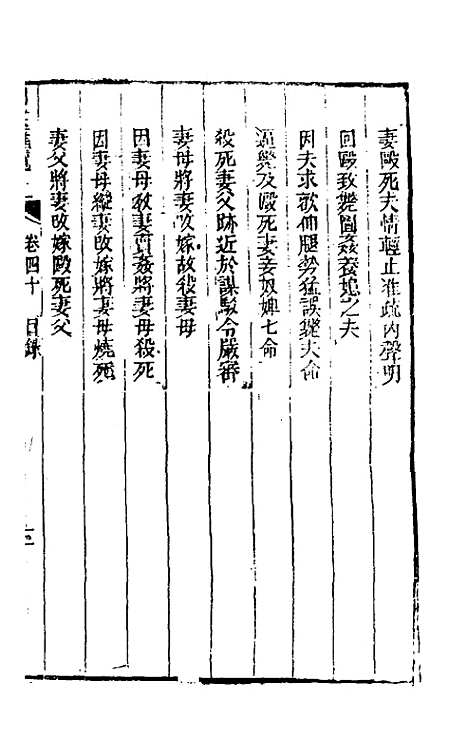 妻毆死夫情輕止准疏内聲明
回毆致斃圖姦養媳之夫
因夫求歡伸腿勢猛誤斃夫命
逼斃及毆死妻妾奴婢七命
殺死妻父跡近於謀駁令嚴審
妻母將妻改嫁故殺妻母
因妻母教妻賣姦將妻母殺死
因妻母縱妻改嫁將妻母燒死
妻父將妻改嫁毆死妻父
卷四十 目錄